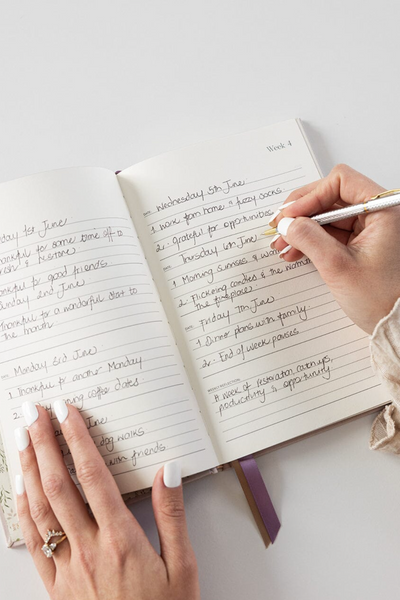 day 1st June
thankful for some time off to
thankful for good friends
Sunday 2nd June
Thankful for a wonderful start to
the month
Monday 3rd June
1. Thankful for another Monday
2. coffee dates
June
dog walks
with friends
Week 4
Wednesday 5th June
1. work from home & fuzzy socks
2. grateful for opportunities
Thursday 6th June
1. Morning sunrises &
2. Flickering candles & the warmth
the fireplace
Friday 7th June
1. Dinner plans with family
2. End of week pauses
A week of restoration catch ups,
productivity & opportunity